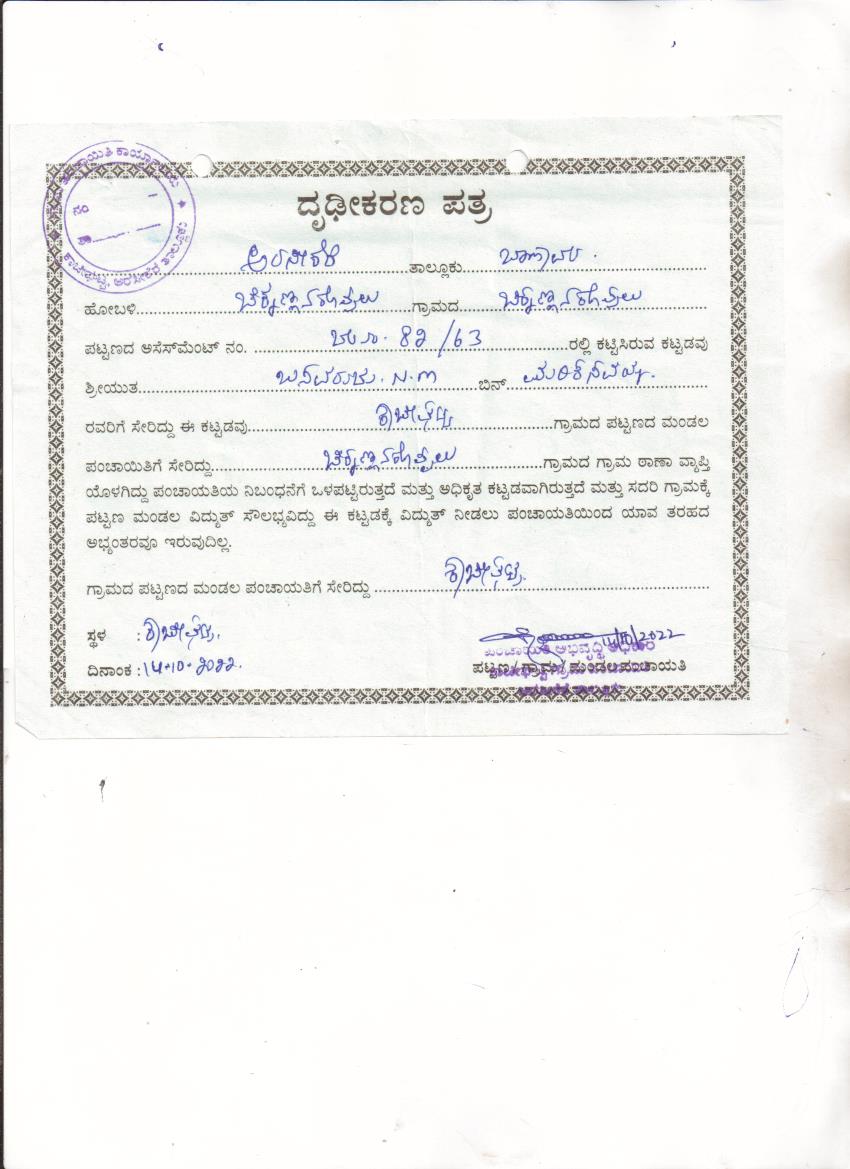 ದೃಢೀಕರಣ ಪತ್ರ
ಅರಸೀಕೆರೆ ತಾಲ್ಲೂಕು ಬಾಣಾವರ
ಹೋಬಳಿ ಚಿಕ್ಕಣ್ಣನಕೊಪ್ಪಲು ಗ್ರಾಮದ ಚಿಕ್ಕಣ್ಣನಕೊಪ್ಪಲು
ಪಟ್ಟಣದ ಅಸೆಸ್‌ಮೆಂಟ್ ನಂ. 82/63 ರಲ್ಲಿ ಕಟ್ಟಿಸಿರುವ ಕಟ್ಟಡವು
ಶ್ರೀಯುತ ಬಸವರಾಜು. N.M ಬಿನ್
ರವರಿಗೆ ಸೇರಿದ್ದು ಈ ಕಟ್ಟಡವು ಗ್ರಾಮದ ಪಟ್ಟಣದ ಮಂಡಲ
ಪಂಚಾಯಿತಿಗೆ ಸೇರಿದ್ದು ಚಿಕ್ಕಣ್ಣನಕೊಪ್ಪಲು ಗ್ರಾಮದ ಗ್ರಾಮ ಠಾಣಾ ವ್ಯಾಪ್ತಿ
ಯೊಳಗಿದ್ದು ಪಂಚಾಯತಿಯ ನಿಬಂಧನೆಗೆ ಒಳಪಟ್ಟಿರುತ್ತದೆ ಮತ್ತು ಅಧಿಕೃತ ಕಟ್ಟಡವಾಗಿರುತ್ತದೆ ಮತ್ತು ಸದರಿ ಗ್ರಾಮಕ್ಕೆ
ಪಟ್ಟಣ ಮಂಡಲ ವಿದ್ಯುತ್ ಸೌಲಭ್ಯವಿದ್ದು ಈ ಕಟ್ಟಡಕ್ಕೆ ವಿದ್ಯುತ್ ನೀಡಲು ಪಂಚಾಯತಿಯಿಂದ ಯಾವ ತರಹದ
ಅಭ್ಯಂತರವೂ ಇರುವುದಿಲ್ಲ.
ಗ್ರಾಮದ ಪಟ್ಟಣದ ಮಂಡಲ ಪಂಚಾಯತಿಗೆ ಸೇರಿದ್ದು
ಸ್ಥಳ :
ದಿನಾಂಕ : 14-10-2022.
ಪಂಚಾಯಿತಿ ಅಭಿವೃದ್ಧಿ ಅಧಿಕಾರಿ
ಪಟ್ಟಣ / ಗ್ರಾಮ / ಮಂಡಲ ಪಂಚಾಯತಿ